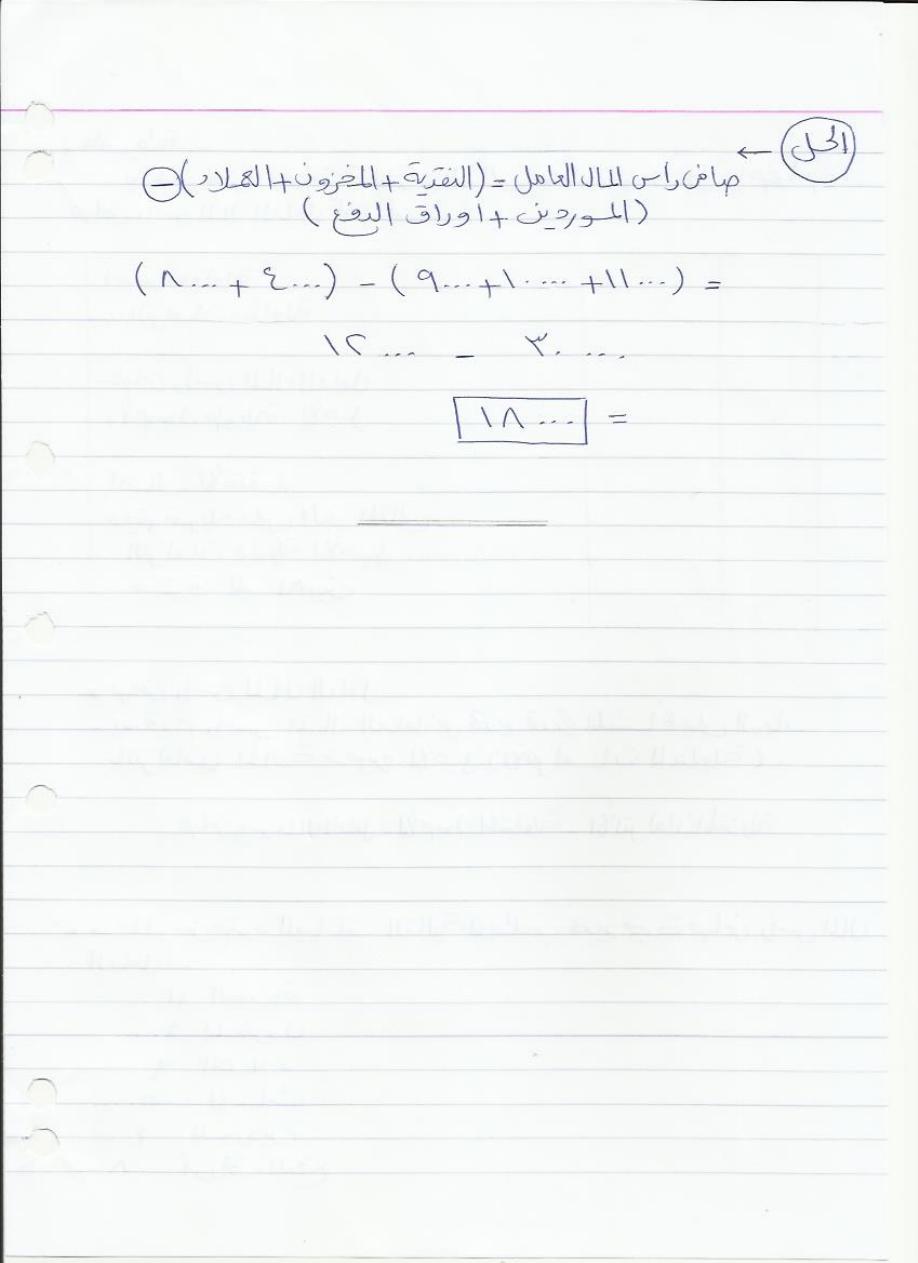 الحل ←
صافى راس المال العامل = (النقدية + المخزون + العملاء) -
(الموردين + اوراق الدفع)
= (١١٠٠٠ + ١٠٠٠٠ + ٩٠٠٠) - (٤٠٠٠ + ٨٠٠٠)
٣٠٠٠٠ - ١٢٠٠٠
= ١٨٠٠٠